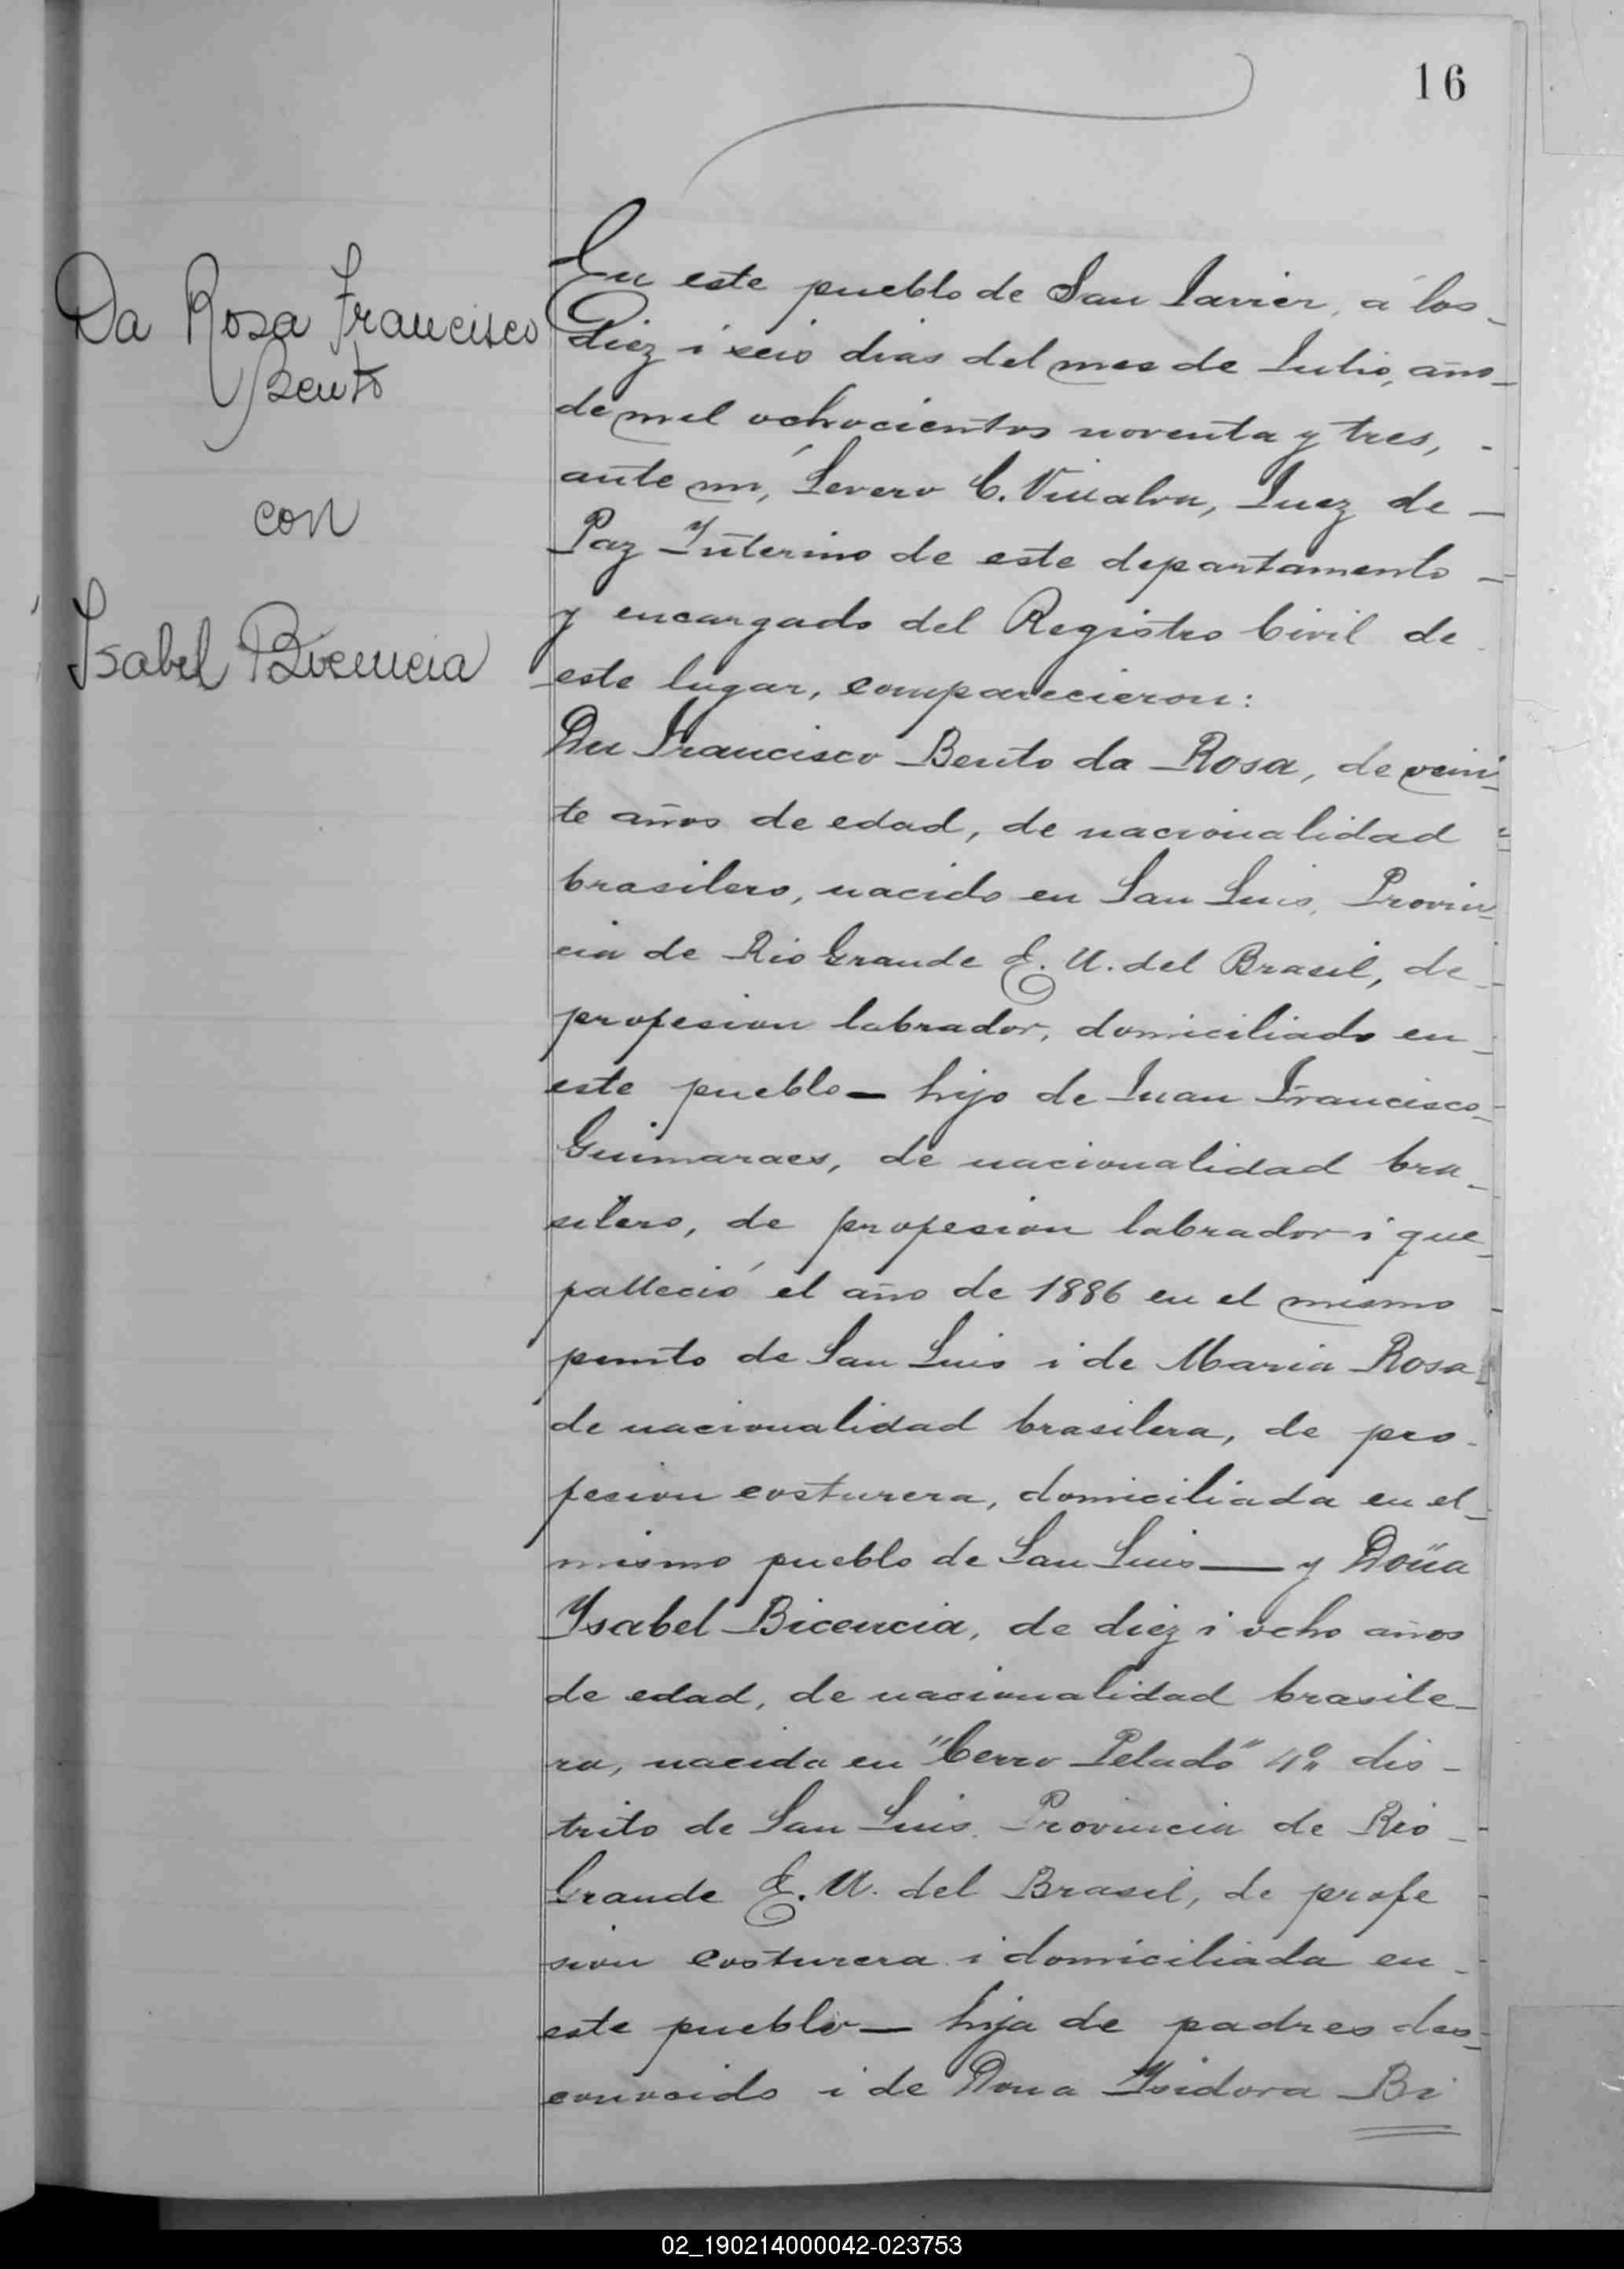 16
Da Rosa Francisco
Bento
con
Isabel Bicencia
En este pueblo de San Javier, á los
Diez i seis dias del mes de Julio, año
de mil ochocientos noventa y tres,
ante mi, Severo C. Villalva, Juez de
Paz Interino de este departamento
y encargado del Registro Civil de
este lugar, comparecieron:
Dn Francisco Bento da Rosa, de vein
te años de edad, de nacionalidad
brasilero, nacido en San Luis, Provin
cia de Rio Grande E. U. del Brasil, de
profesion labrador, domiciliado en
este pueblo — hijo de Juan Francisco
Guimaraes, de nacionalidad bra-
silero, de profesion labrador i que
falleció el año de 1886 en el mismo
punto de San Luis i de Maria Rosa
de nacionalidad brasilera, de pro-
fesion costurera, domiciliada en el
mismo pueblo de San Luis — y Doña
Ysabel Bicencia, de diez i ocho años
de edad, de nacionalidad brasile-
ra, nacida en "Cerro Pelado" 4º dis-
trito de San Luis, Provincia de Rio
Grande E. U. del Brasil, de profe
sion costurera i domiciliada en
este pueblo — hija de padres des-
conocido i de Dona Ysidora Bi
02_190214000042-023753